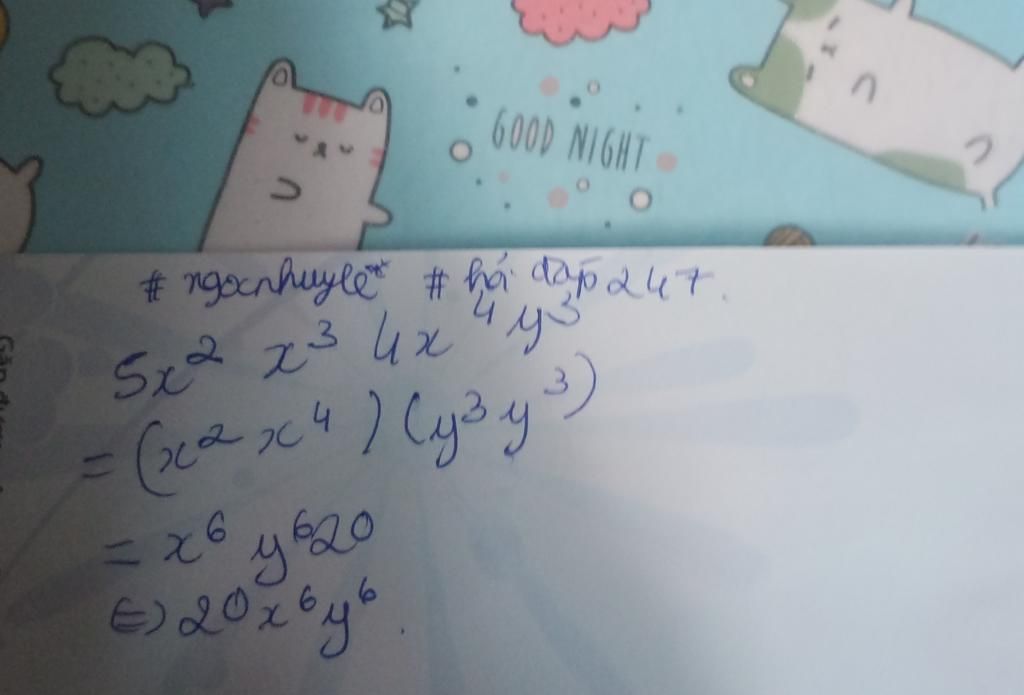 GOOD NIGHT
# ngocnhuyle** # hỏi đáp 247.
5x² x³ 4x⁴y³
= (x² x⁴) (y³ y³)
= x⁶ y⁶20
⇔ 20x⁶y⁶.